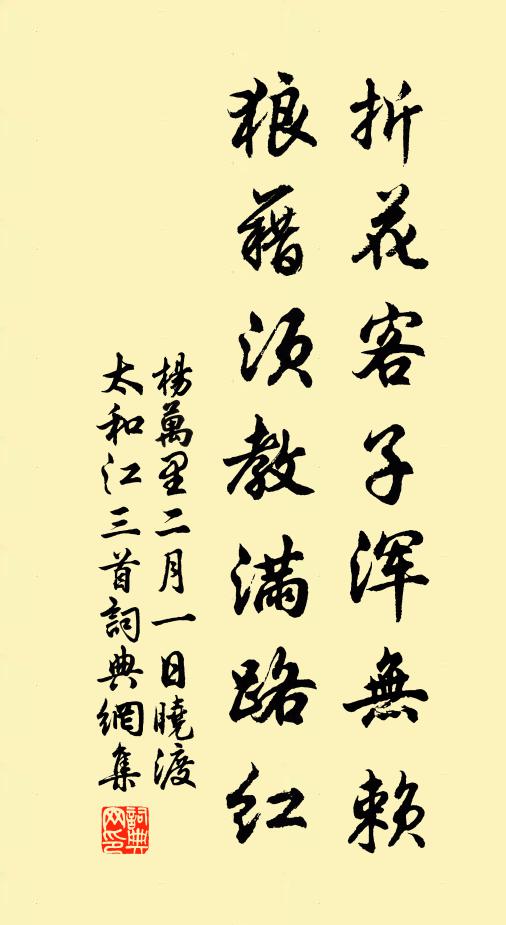 折花客子浑無赖
狼藉须教满路红
楊萬里二月一日曉渡
太和江三首詞典網集
詞典
网印